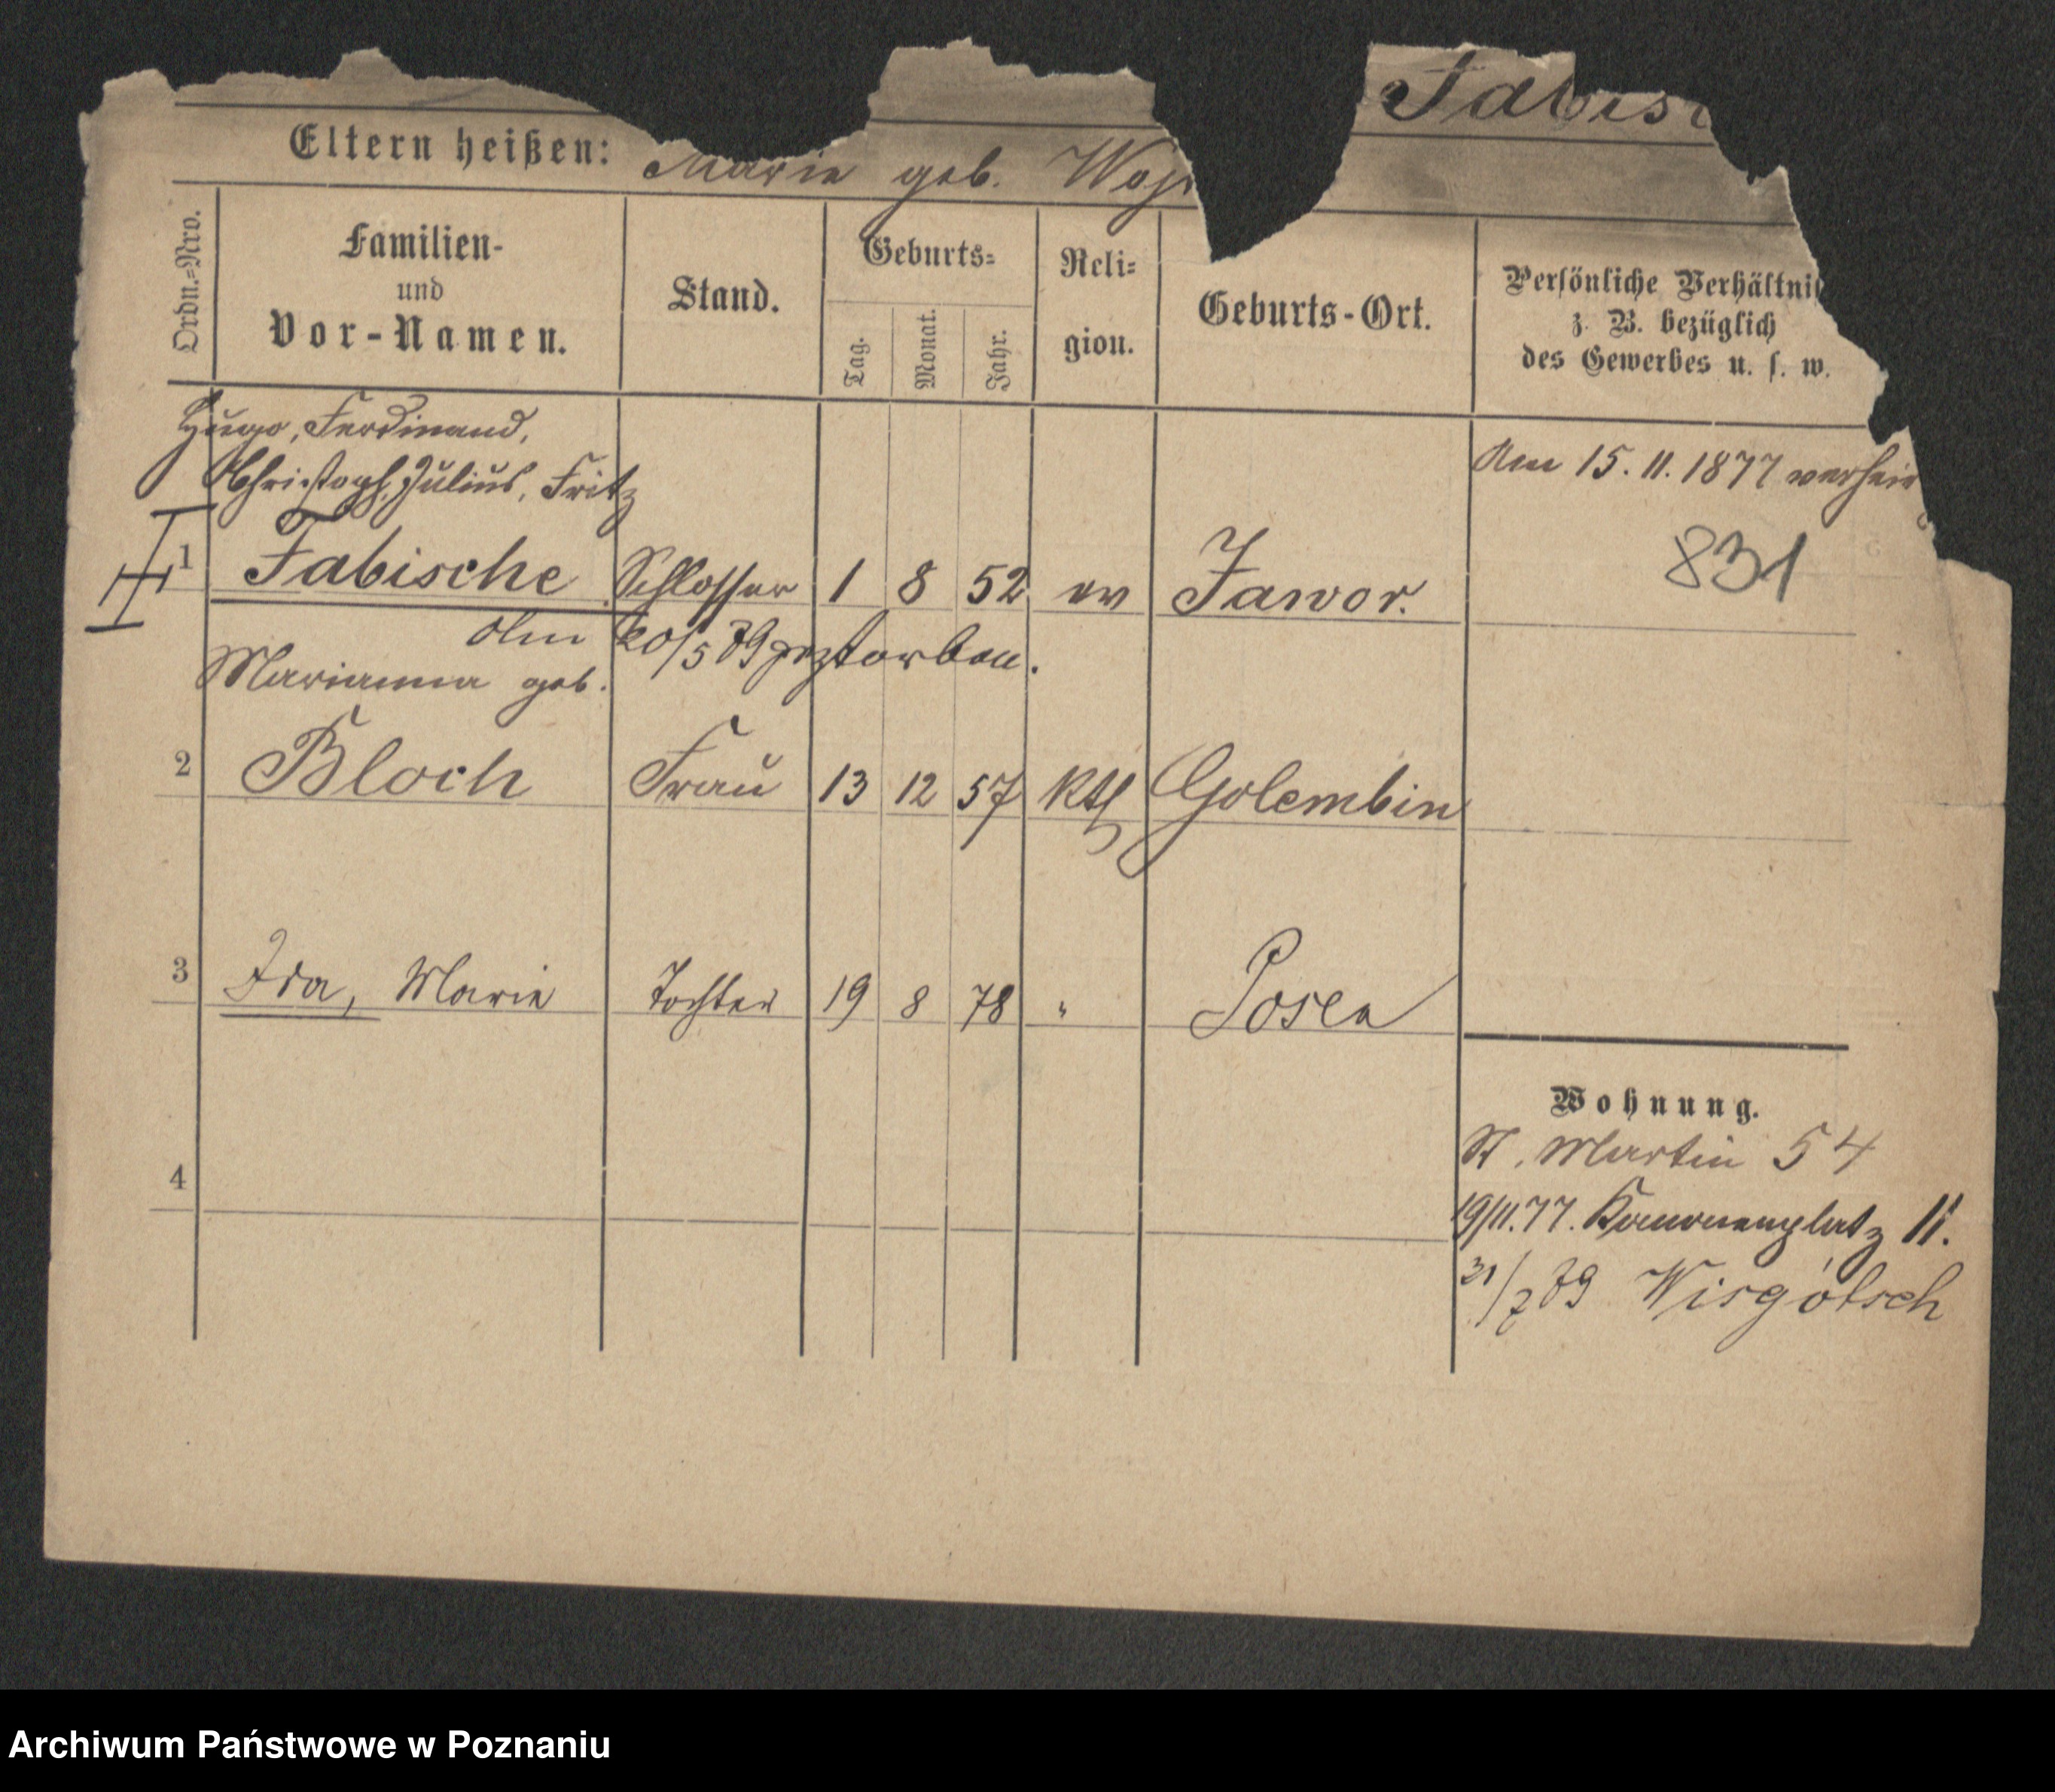 Fabisc
Eltern heißen: Marie geb. Woj
Ordn.=Nro.
Familien-
und
Vor-Namen.
Stand.
Geburts=
Tag.
Monat.
Jahr.
Reli=
gion.
Geburts-Ort.
Persönliche Verhältnis
z. B. bezüglich
des Gewerbes u. s. w.
Hugo, Ferdinand,
Christoph, Julius, Fritz
Am 15. 11. 1877 verheir
1 Fabische Schlosser 1 8 52 ev Jawor. 831
Am 20/5 79 gestorben.
Marianna geb.
2 Bloch Frau 13 12 57 Kth Golembin
3 Ida, Marie Tochter 19 8 78 " Posen
Wohnung.
St. Martin 54
4
19/11.77. Kanonenplatz 11.
31/7 79
Archiwum Państwowe w Poznaniu